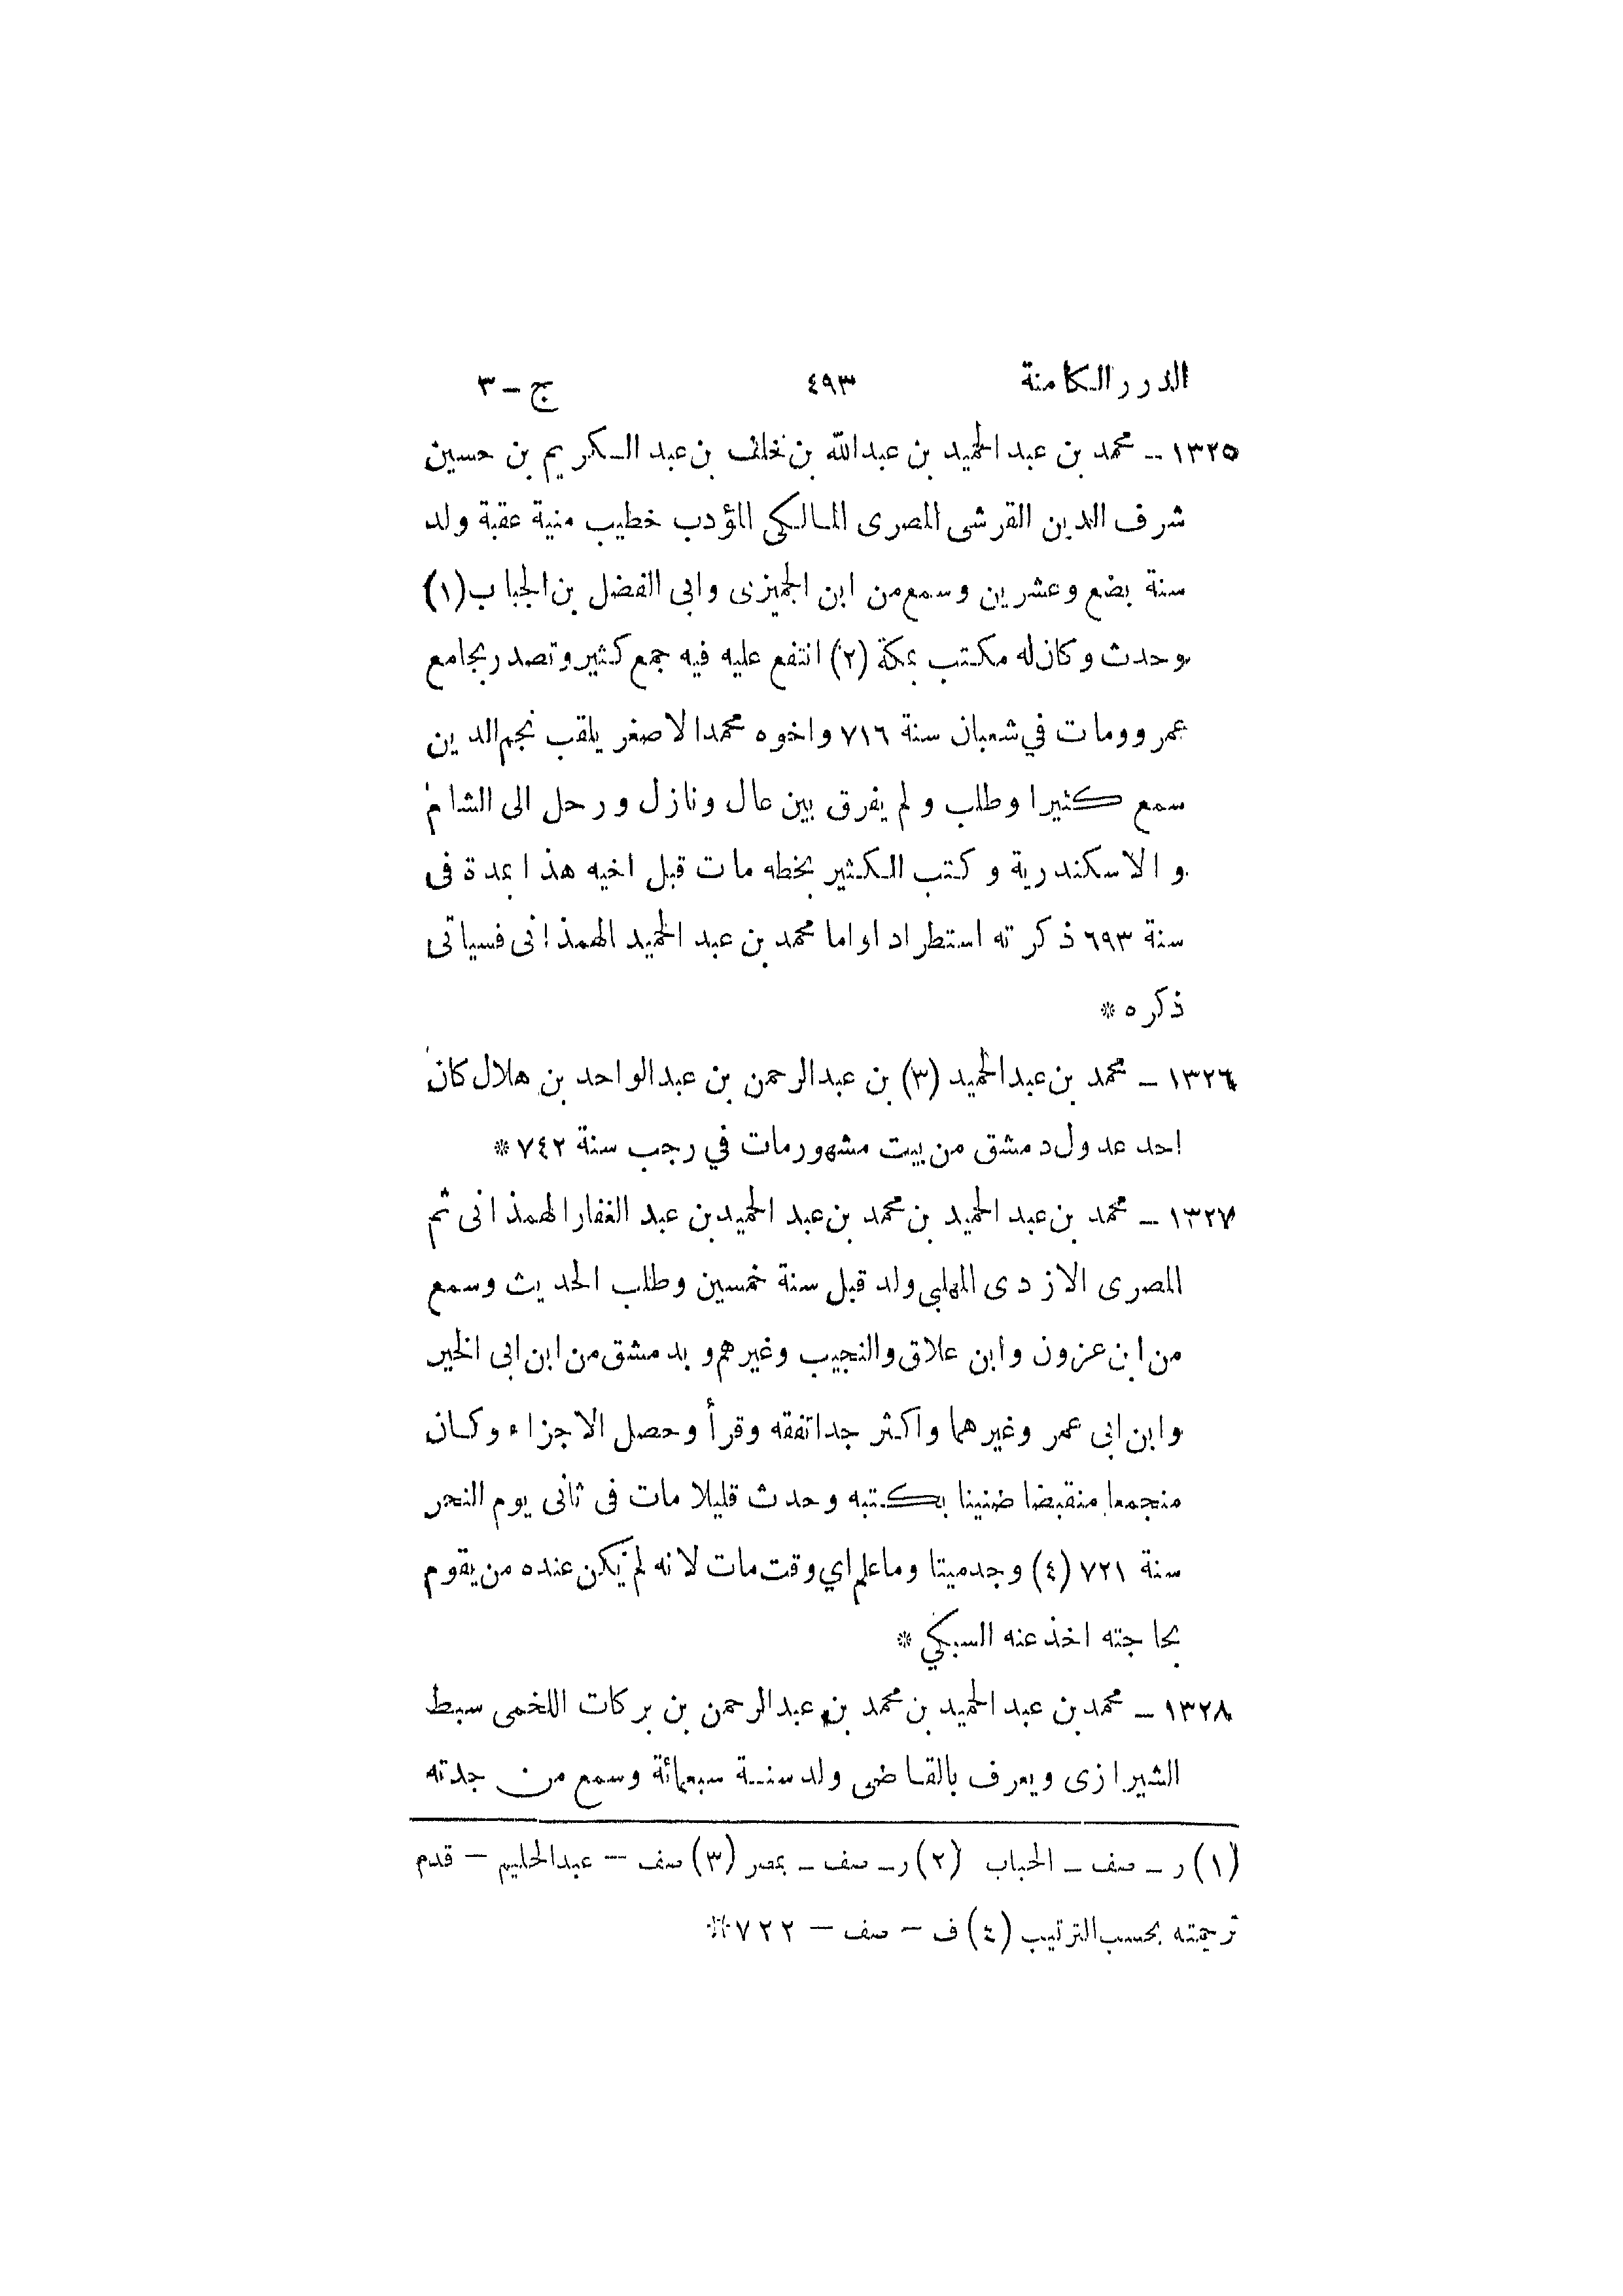 الدرر الكامنة ٤٩٣ ج - ٣
١٣٢٥ - محمد بن عبد الحميد بن عبدالله بن خلف بن عبد الكريم بن حسين
شرف الدين القرشى المصرى المالكى المؤدب خطيب منية عقبة ولد
سنة بضع وعشرين وسمع من ابن الجميزى وابى الفضل بن الجباب (١)
وحدث وكان له مكتب بمكة (٢) انتفع عليه فيه جمع كثير وتصدر بجامع
عمرو ومات في شعبان سنة ٧١٦ واخوه محمد الاصغر يلقب نجم الدين
سمع كثيرا وطلب و لم يفرق بين عال ونازل ورحل الى الشام
و الاسكندرية و كتب الكثير بخطه مات قبل اخيه هذا بمدة فى
سنة ٦٩٣ ذكرته استطرادا واما محمد بن عبد الحميد الهمذانى فسياتى
ذكره *
١٣٢٦ - محمد بن عبد الحميد (٣) بن عبد الرحمن بن عبد الواحد بن هلال كان
احد عدول دمشق من بيت مشهور مات في رجب سنة ٧٤٢ *
١٣٢٧ - محمد بن عبد الحميد بن محمد بن عبد الحميد بن عبد الغفار الهمذانى ثم
المصرى الازدى المهلبى ولد قبل سنة خمسين وطلب الحديث وسمع
من ابن عزون وابن علاق والنجيب وغيرهم وبدمشق من ابن ابى الخير
وابن ابى عمر وغيرهما واكثر جدا تفقه وقرأ وحصل الاجزاء وكان
منجمعا منقبضا ضنينا بكتبه وحدث قليلا مات فى ثانى يوم النحر
سنة ٧٢١ (٤) وجد ميتا وما علم اي وقت مات لانه لم يكن عنده من يقوم
بحاجته اخذ عنه السبكي *
١٣٢٨ - محمد بن عبد الحميد بن محمد بن عبد الرحمن بن بركات اللخمى سبط
الشيرازى ويعرف بالقاضى ولد سنة سبعمائة وسمع من جدته
(١) ر - صف - الحباب (٢) ر - صف - بمصر (٣) صف - عبد الحليم - قدم
ترجمته بحسب الترتيب (٤) ف - صف - ٧٢٢ *